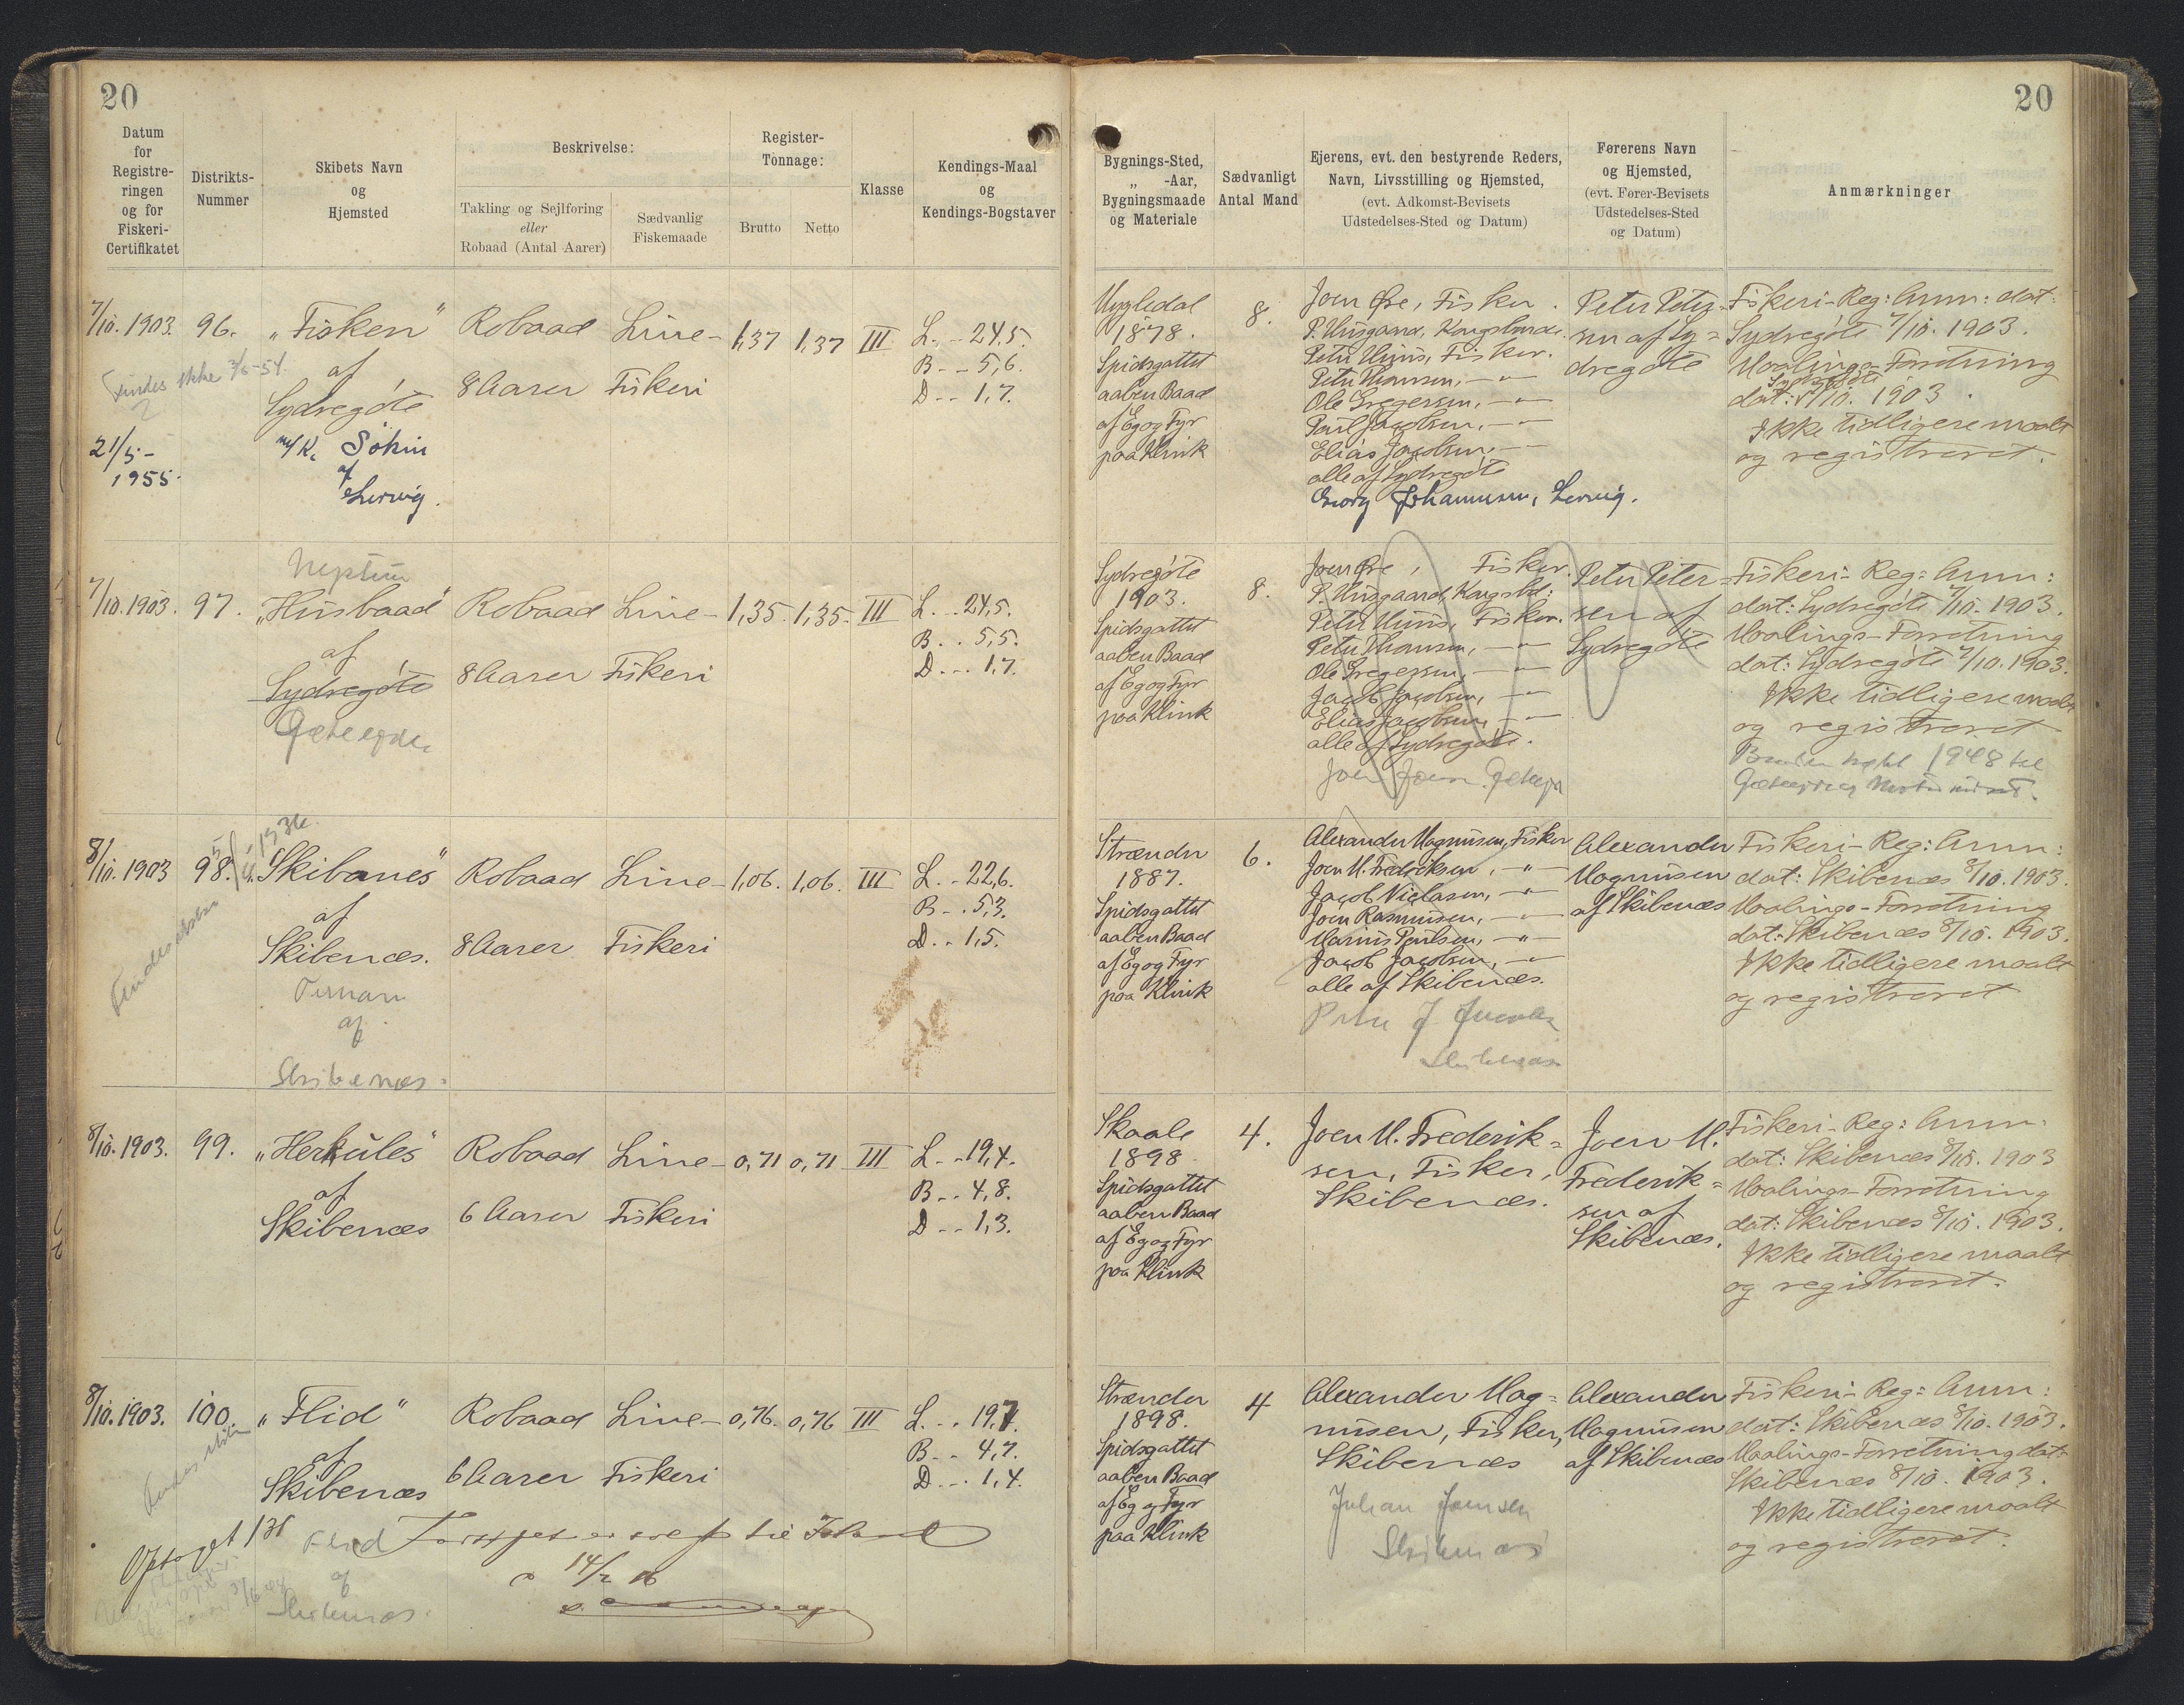 20
20
Datum
for
Registre-
ringen
og for
Fiskeri-
Certifikatet
Distrikts-
Nummer
Skibets Navn
og
Hjemsted
Beskrivelse:
Takling og Sejlføring
eller
Robaad (Antal Aarer)
Sædvanlig
Fiskemaade
Register-
Tonnage:
Brutto
Netto
Klasse
Kendings-Maal
og
Kendings-Bogstaver
Bygnings-Sted,
„ -Aar,
Bygningsmaade
og Materiale
Sædvanligt
Antal Mand
Ejerens, evt. den bestyrende Reders,
Navn, Livsstilling og Hjemsted,
(evt. Adkomst-Bevisets
Udstedelses-Sted og Datum)
Førerens Navn
og Hjemsted,
(evt. Fører-Bevisets
Udstedelses-Sted
og Datum)
Anmærkninger
7/10. 1903.
Findes ikke 3/6-54.
21/5-
1955.
96.
„Fisken"
af
Sydregøte
m/k. Sókin
af
Lervig.
Robaad
8 Aarer
Line-
Fiskeri
1,37
1,37
III
L. - 24,5.
B - - 5,6.
D - - 1,7.
1878.
Spidsgattet
aaben Baad
af Eg og Fyr
paa Klink
8.
Joen Øre, Fisker.
Peter Thomsen, —„—
Ole Gregersen, —„—
Poul Jacobsen, —„—
Elias Jacobsen, —
alle af Sydregøte
Georg Johannesen, Lervig.
Peter Peter=
sen af Sy=
dregøte
Fiskeri-Reg: Anm: dat:
Sydregøte 7/10. 1903.
Maalings-Forretning
Sydregøte
dat: 7/10. 1903.
Ikke tidligere maalt
og registreret.
7/10. 1903.
97.
Neptun
„Husbaad"
af
Sydregøte
Robaad
8 Aarer
Line-
Fiskeri
1,35.
1,35.
III
L. - 24,5.
B. . 5,5.
D. - . 1,7.
Sydregøte
1903.
Spidsgattet
aaben Baad
af Eg og Fyr
paa Klink
8.
Joen Øre, Fisker.
Peter Thomsen, —„—
Ole Gregersen, —„—
Jacob Jacobsen, —„—
Elias Jacobsen, —„—
alle af Sydregøte.
Peter Peter=
sen af
Sydregøte
Fiskeri-Reg: Anm:
dat: Sydregøte 7/10. 1903.
Maalings-Forretning
dat: Sydregøte 7/10. 1903.
Ikke tidligere maalt
og registreret
1948 til
8/10. 1903
98.
„Skibanes"
af
Skibenæs.
Ternan
af
Skibenæs.
Robaad
8 Aarer
Line-
Fiskeri
1,06.
1,06.
III
L. - 22,6.
B - . 5,3.
D. . 1,5.
Strænder
1887.
Spidsgattet
aaben Baad
af Eg og Fyr
paa Klink
6.
Alexander Magnusen, Fisker
Joen M. Fredriksen, —„—
Jacob Niclasen, —„—
Joen Rasmusen, —„—
Marius Poulsen, —„—
Jacob Jacobsen, —„—
alle af Skibenæs.
Alexander
Magnusen
af Skibenæs
Fiskeri-Reg: Anm:
dat: Skibenæs 8/10. 1903.
Maalings-Forretning
dat: Skibenæs 8/10. 1903.
Ikke tidligere maalt
og registreret
8/10. 1903.
99.
„Herkules"
af
Skibenæs
Robaad
6 Aarer
Line-
Fiskeri
0,71
0,71
III
L. - 19,4.
B - . 4,8.
D - - 1,3.
Skaale
1898.
Spidsgattet
aaben Baad
af Eg og Fyr
paa Klink
4.
Joen M. Frederik=
sen, Fisker,
Skibenæs.
Joen M.
Frederik=
sen af
Skibenæs.
Fiskeri-Reg: Anm.
dat: Skibenæs 8/10. 1903
Maalings-Forretning
dat: Skibenæs 8/10. 1903.
Ikke tidligere maalt
og registreret.
8/10. 1903.
100.
„Flid"
af
Skibenæs
Robaad
6 Aarer
Line-
Fiskeri
0,76.
0,76
III
L. . . 19,7.
B - - 4,7.
D. - . 1,4.
Strænder
1898.
Spidsgattet
aaben Baad
af Eg og Fyr
paa Klink
4
Alexander Mag=
nusen, Fisker,
Skibenæs
Johan Joensen
Skibenæs
Alexander
Magnusen
af Skibenæs
Fiskeri-Reg: Anm:
dat: Skibenæs 8/10. 1903.
Maalings-Forretning dat:
Skibenæs 8/10. 1903.
Ikke tidligere maalt
og registreret.
Flid
af
Skibenæs.